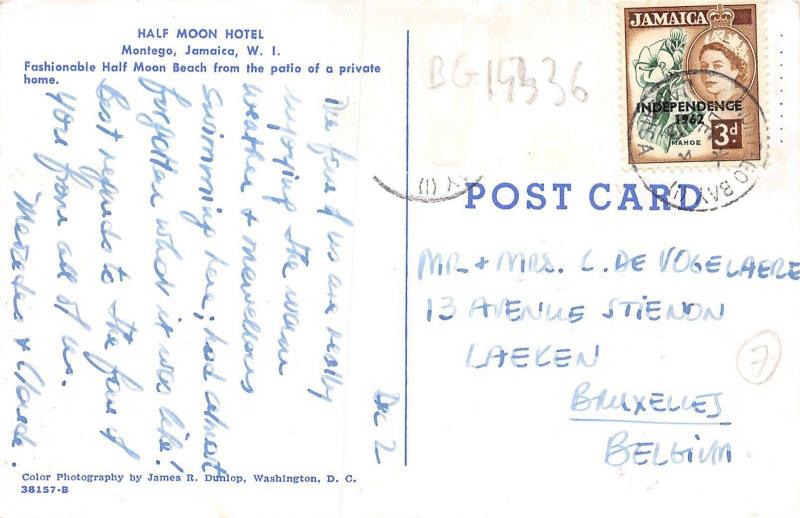 HALF MOON HOTEL
Montego, Jamaica, W. I.
Fashionable Half Moon Beach from the patio of a private
home.
The five of us are really
enjoying the warm
weather & marvellous
swimming here; had almost
forgotten what it was like!
Best regards to the five of
you from all of us.
Mercedes & Claude.
Dec 2
Color Photography by James R. Dunlop, Washington, D. C.
38157-B
BG.14336
JAMAICA
INDEPENDENCE
1962
MAHOE
3d
BAY (1)
POST CARD
MR. + MRS. C. DE VOGELAERE
13 AVENUE STIENON
LAEKEN
BRUXELLES
BELGIUM
7